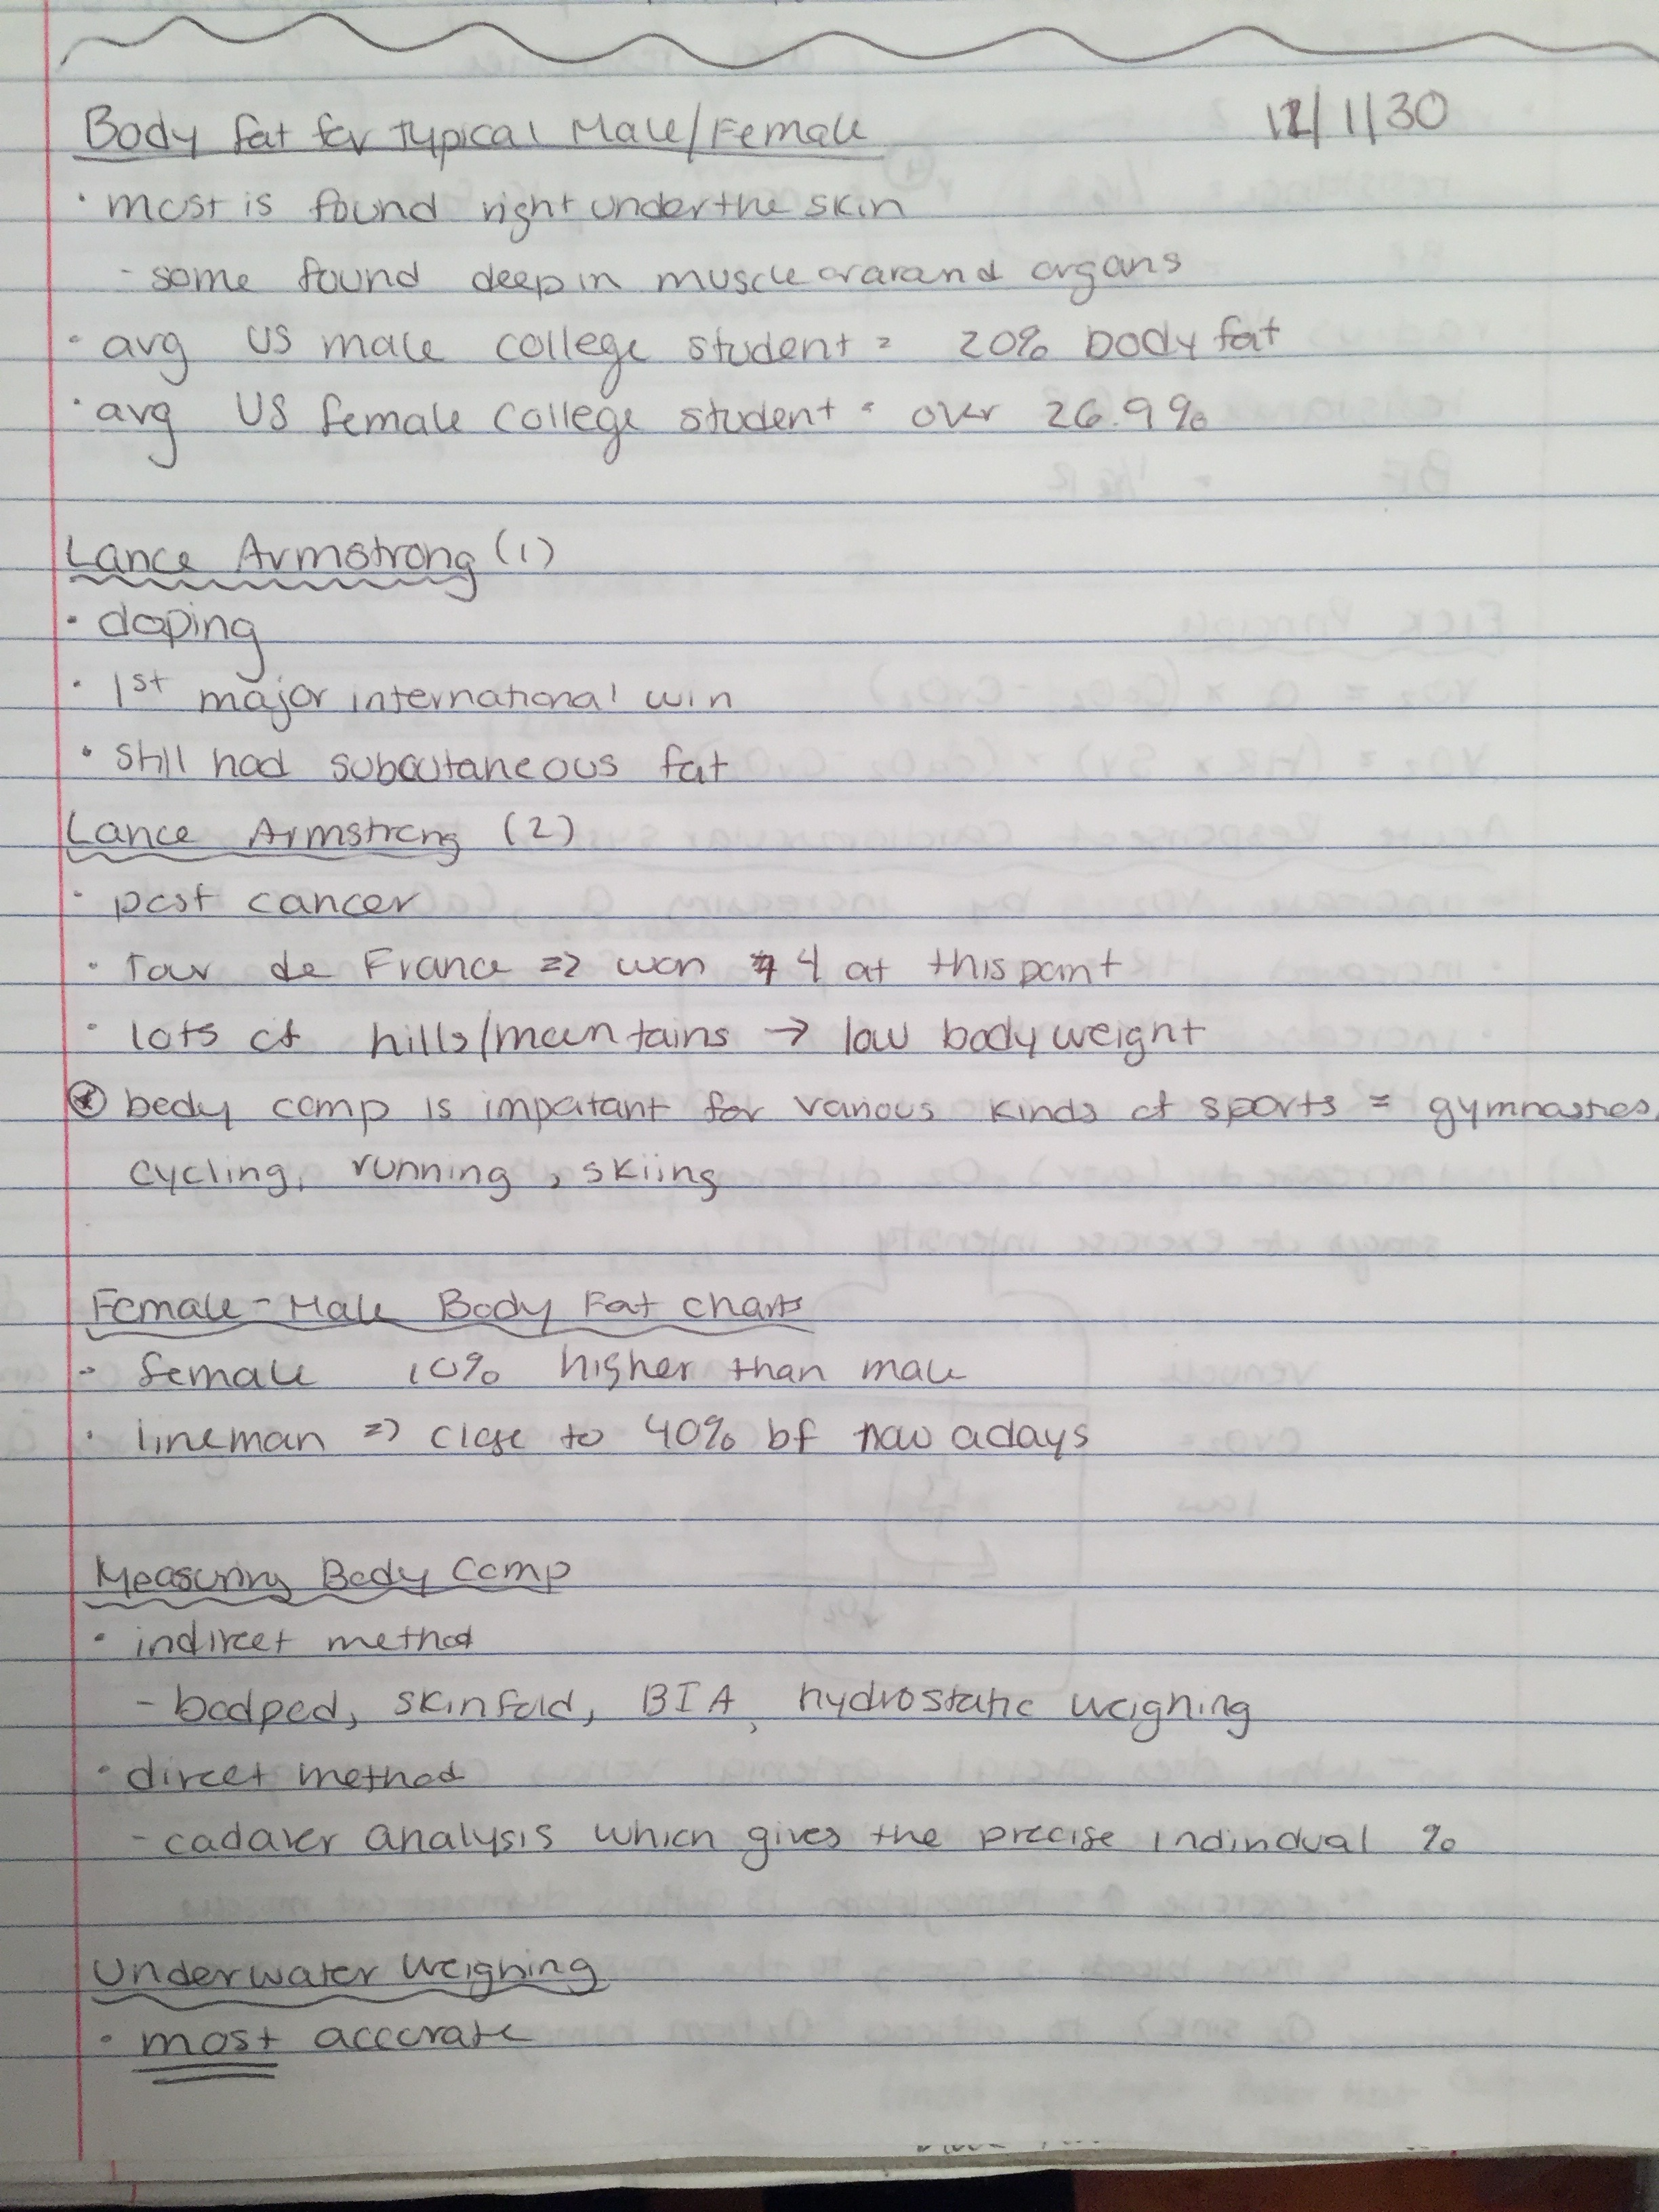 Body fat for typical Male/Female 12/1/30
· most is found right under the skin
- some found deep in muscle or around organs
· avg US male college student = 20% body fat
· avg US female college student = over 26.9%
Lance Armstrong (1)
· doping
· 1st major international win
· still had subcutaneous fat
Lance Armstrong (2)
· post cancer
· Tour de France => won 4 at this point
· lots of hills/mountains → low body weight
⍟ body comp is important for various kinds of sports = gymnastics,
cycling, running, skiing
Female-Male Body Fat charts
- female 10% higher than male
· lineman => close to 40% bf now adays
Measuring Body Comp
· indirect method
- bodpod, skinfold, BIA, hydrostatic weighing
· direct method
- cadaver analysis which gives the precise individual %
Underwater Weighing
· most accurate